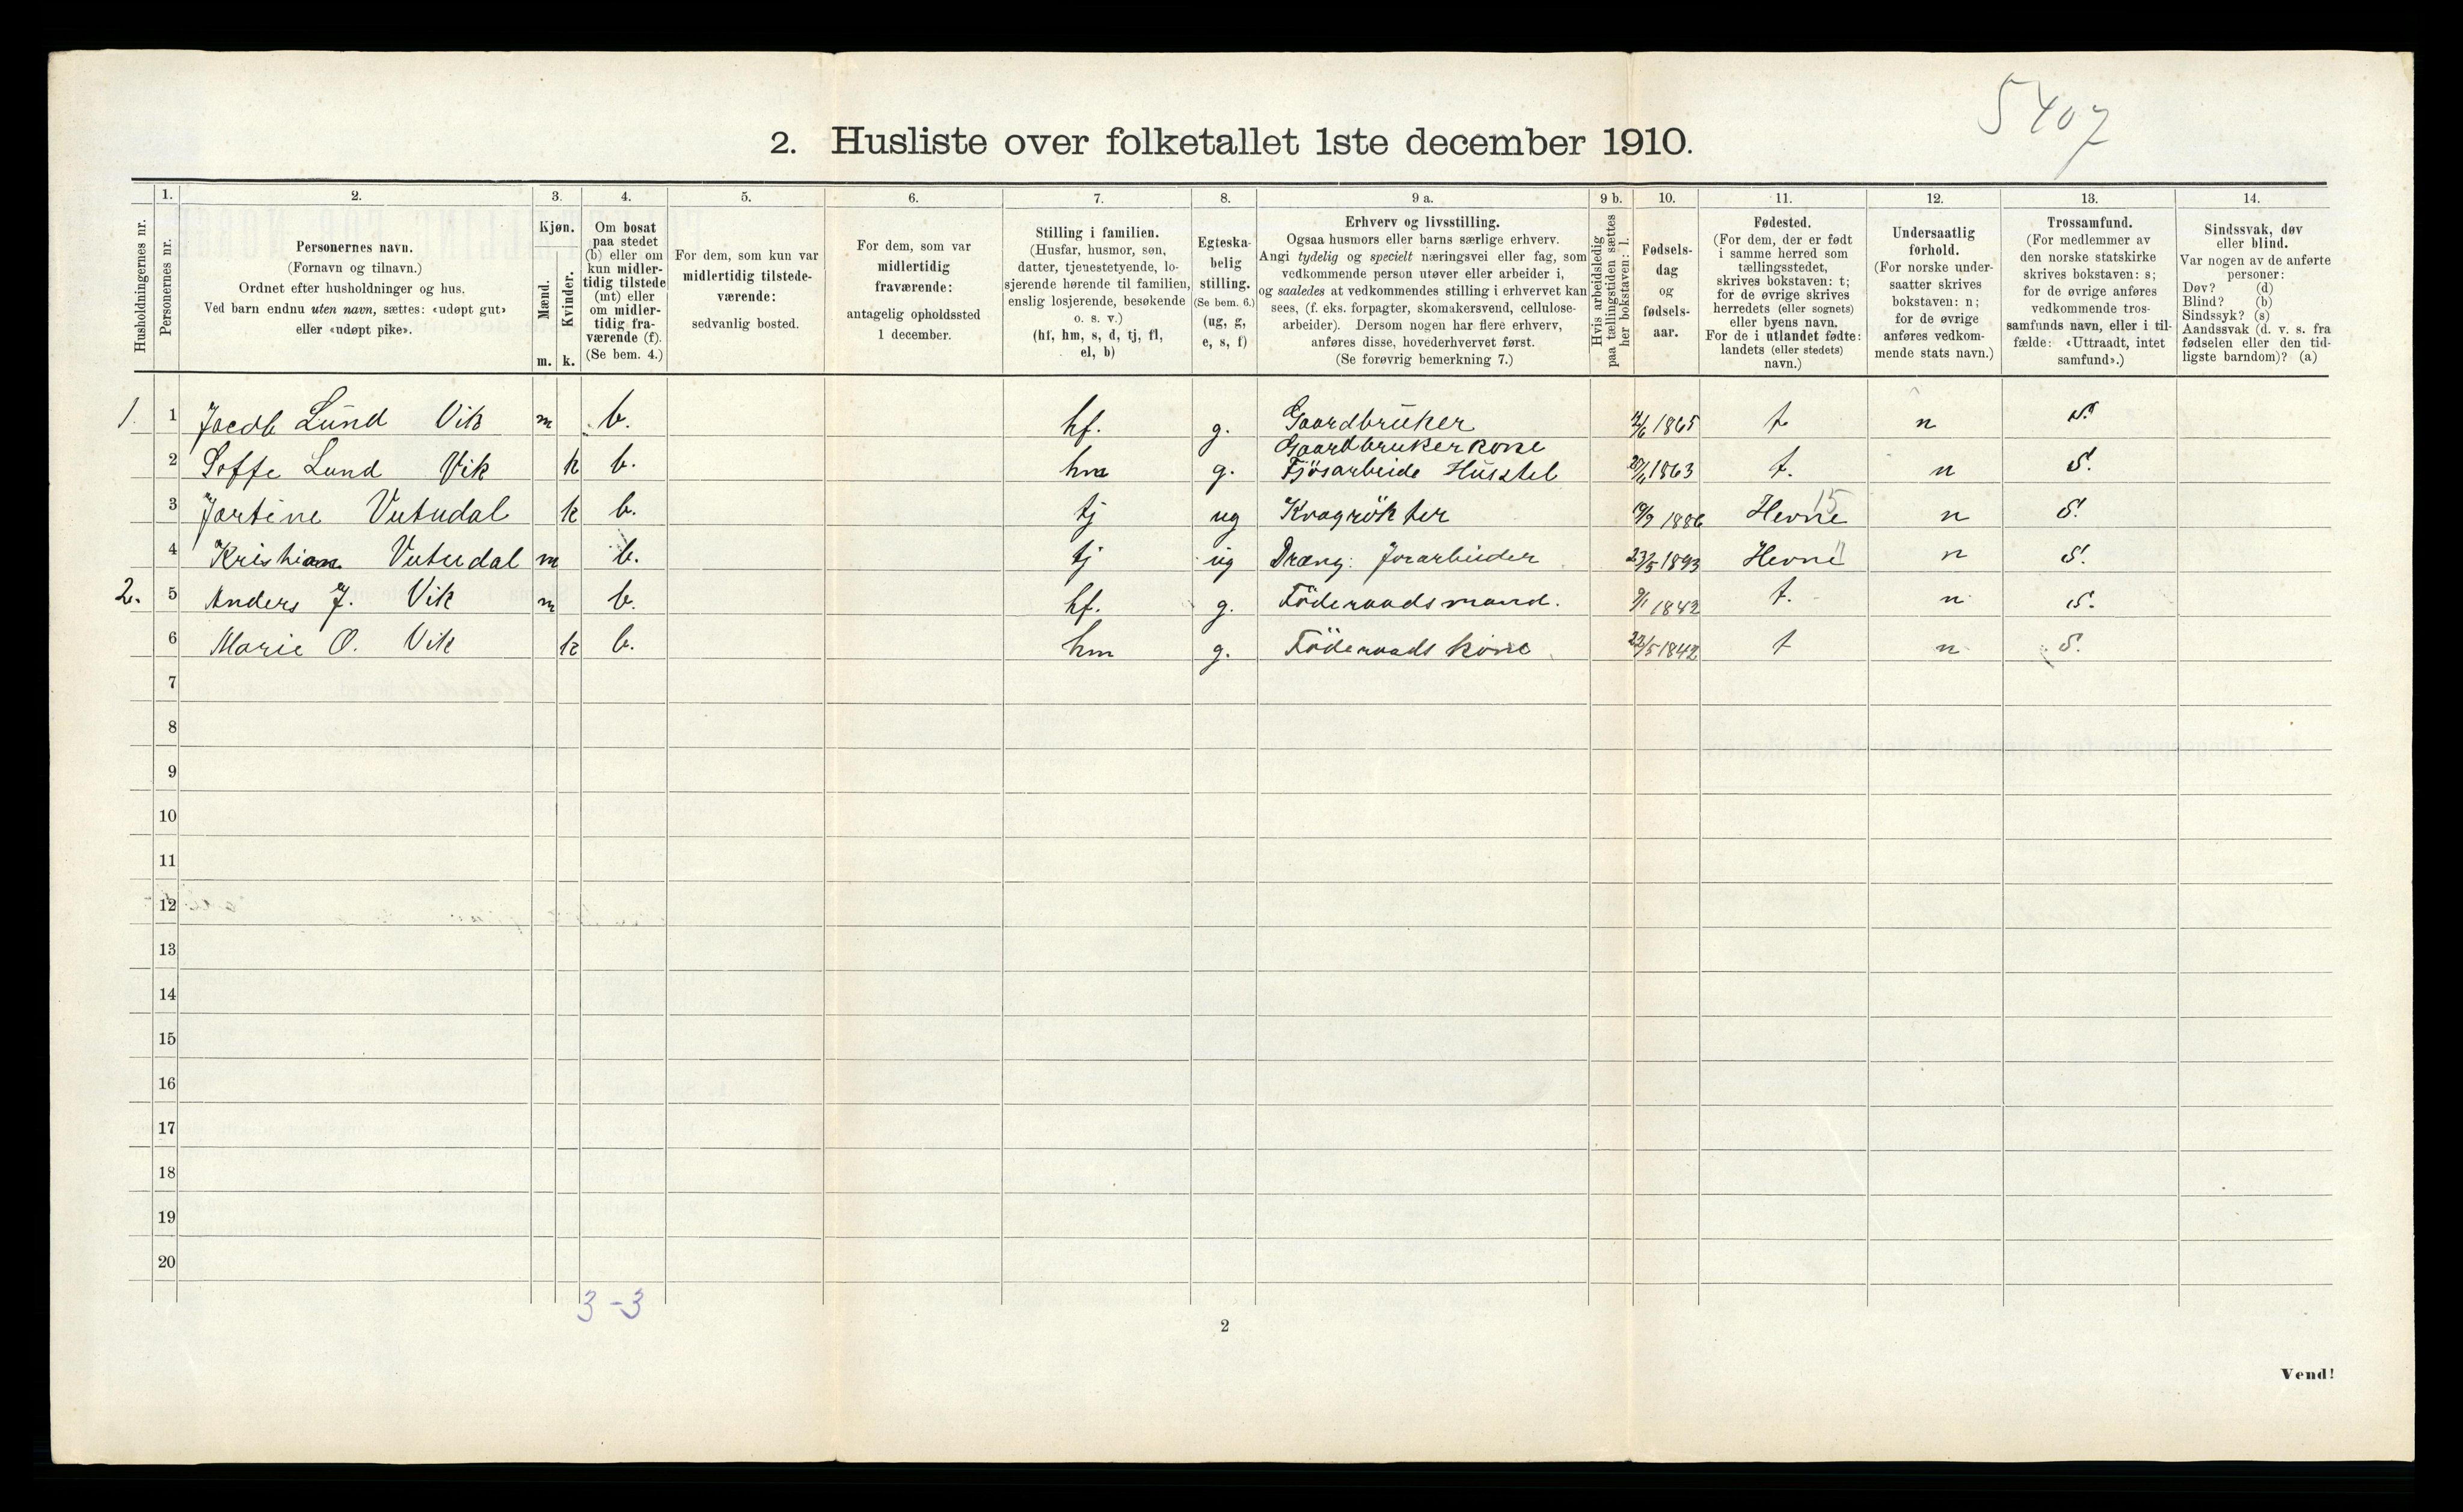 5407
2. Husliste over folketallet 1ste december 1910.
Husholdningernes nr.
1.
Personernes nr.
2.
Personernes navn.
(Fornavn og tilnavn.)
Ordnet efter husholdninger og hus.
Ved barn endnu uten navn, sættes: «udøpt gut»
eller «udøpt pike».
3.
Kjøn.
Mænd.
m.
Kvinder.
k.
4.
Om bosat
paa stedet
(b) eller om
kun midler-
tidig tilstede
(mt) eller
om midler-
tidig fra-
værende (f).
(Se bem. 4.)
5.
For dem, som kun var
midlertidig tilstede-
værende:
sedvanlig bosted.
6.
For dem, som var
midlertidig
fraværende:
antagelig opholdssted
1 december.
7.
Stilling i familien.
(Husfar, husmor, søn,
datter, tjenestetyende, lo-
sjerende hørende til familien,
enslig losjerende, besøkende
o. s. v.)
(hf, hm, s, d, tj, fl,
el, b)
8.
Egteska-
belig
stilling.
(Se bem. 6.)
(ug, g,
e, s, f)
9 a.
Erhverv og livsstilling.
Ogsaa husmors eller barns særlige erhverv.
Angi tydelig og specielt næringsvei eller fag, som
vedkommende person utøver eller arbeider i,
og saaledes at vedkommendes stilling i erhvervet kan
sees, (f. eks. forpagter, skomakersvend, cellulose-
arbeider). Dersom nogen har flere erhverv,
anføres disse, hovederhvervet først.
(Se forøvrig bemerkning 7.)
9 b.
Hvis arbeidsledig
paa tællingstiden sættes
her bokstaven: l.
10.
Fødsels-
dag
og
fødsels-
aar.
11.
Fødested.
(For dem, der er født
i samme herred som
tællingsstedet,
skrives bokstaven: t;
for de øvrige skrives
herredets (eller sognets)
eller byens navn.
For de i utlandet fødte:
landets (eller stedets)
navn.)
12.
Undersaatlig
forhold.
(For norske under-
saatter skrives
bokstaven: n;
for de øvrige
anføres vedkom-
mende stats navn.)
13.
Trossamfund.
(For medlemmer av
den norske statskirke
skrives bokstaven: s;
for de øvrige anføres
vedkommende tros-
samfunds navn, eller i til-
fælde: «Uttraadt, intet
samfund».)
14.
Sindssvak, døv
eller blind.
Var nogen av de anførte
personer:
Døv? (d)
Blind? (b)
Sindssyk? (s)
Aandssvak (d. v. s. fra
fødselen eller den tid-
ligste barndom)? (a)
1. 1 Jacob Lund Vik m b. hf. g. Gaardbruker 1865 t n S.
Gaardbrukerkone
2 Soffe Lund Vik k b. hm g. Fjösarbeide Husstel 1863 t. n S.
3 Jortine Vutudal k b. tj ug Kvagrökter 10/9 1886 Hevne 15 n S.
4 Kristian Vutudal m b. tj ug Dræng: Jorarbeider 23/5 1893 Hevne " n S.
2. 5 Anders J. Vik m b. hf. g. Föderaadsmand. 9/1 1842 t. n S.
6 Marie O. Vik k b. hm g. Föderaadskone 22/5 1842 t n S.
7
8
9
10
11
12
13
14
15
16
17
18
19
20
3-3
2
Vend!